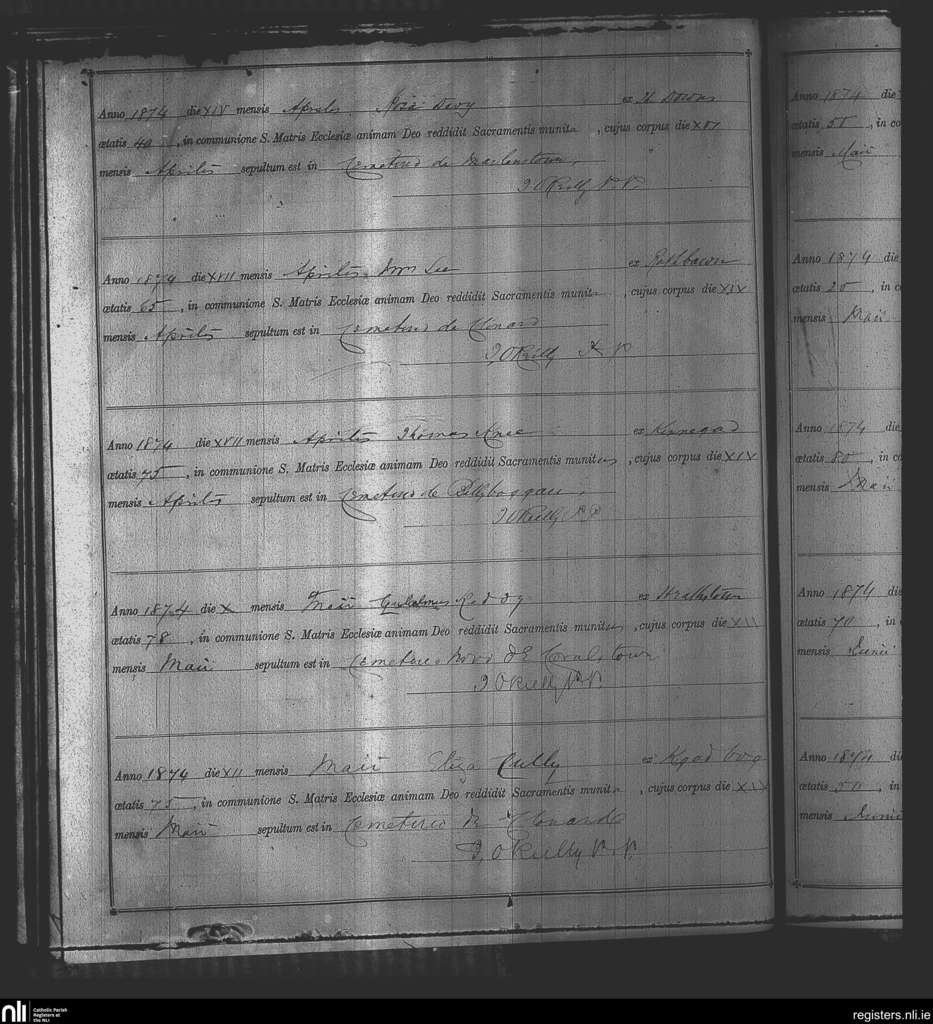 Anno 1874 die XIV mensis Aprilis Rosa Davy ex H Downs
ætatis 40, in communione S. Matris Ecclesiæ animam Deo reddidit Sacramentis munita, cujus corpus die XVI
mensis Aprilis sepultum est in Cemeterio de
J O'Reilly P. P.
Anno 1874 die XVII mensis Aprilis Wm Lee ex
ætatis 65, in communione S. Matris Ecclesiæ animam Deo reddidit Sacramentis munit, cujus corpus die XIX
mensis Aprilis sepultum est in Cemeterio de Clonard
J, O'Reilly P. P.
Anno 1874 die XVII mensis Aprilis Thomas ex Kinnegad
ætatis 75, in communione S. Matris Ecclesiæ animam Deo reddidit Sacramentis munitus, cujus corpus die XIX
mensis Aprilis sepultum est in Cemeterio de
J O'Reilly P. P.
Anno 1874 die X mensis Maii Gulielmus ex
ætatis 78, in communione S. Matris Ecclesiæ animam Deo reddidit Sacramentis munitus, cujus corpus die XII
mensis Maii sepultum est in Cemeterio Novo de Coralstown
J O'Reilly P. P.
Anno 1874 die XII mensis Maii Eliza Cully ex
ætatis 75, in communione S. Matris Ecclesiæ animam Deo reddidit Sacramentis munita, cujus corpus die XIV
mensis Maii sepultum est in Cemeterio de Clonard
J, O'Reilly P. P.
Anno 1874 die
ætatis 50, in co
mensis Maii
Anno 1874 die
ætatis 20, in c
mensis Maii
Anno 1874 die
ætatis 80, in c
mensis Maii
Anno 1874 die
ætatis 70, in
mensis Junii
Anno 1874 di
ætatis 50, in
mensis Junii
nli Catholic Parish
Registers at
the NLI
registers.nli.ie